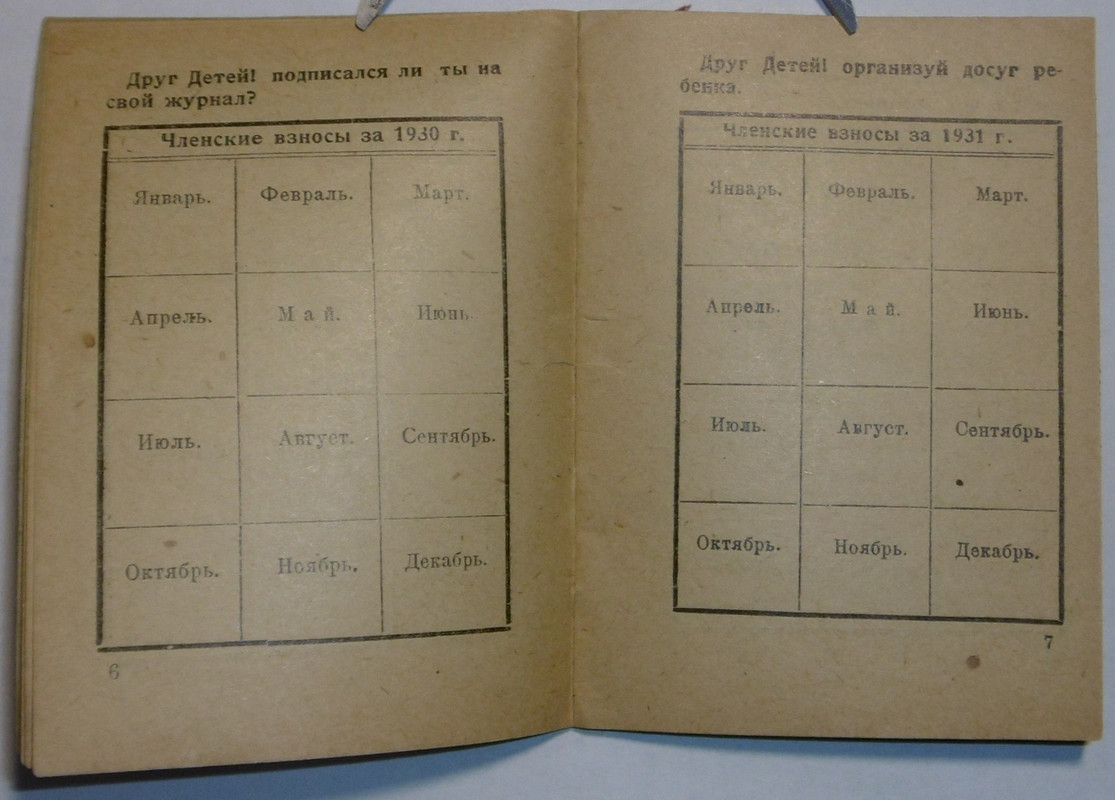 Друг Детей! подписался ли ты на
свой журнал?
Членские взносы за 1930 г.
Январь. Февраль. Март.
Апрель. Май. Июнь.
Июль. Август. Сентябрь.
Октябрь. Ноябрь. Декабрь.
6
Друг Детей! организуй досуг ре-
бенка.
Членские взносы за 1931 г.
Январь. Февраль. Март.
Апрель. Май. Июнь.
Июль. Август. Сентябрь.
Октябрь. Ноябрь. Декабрь.
7